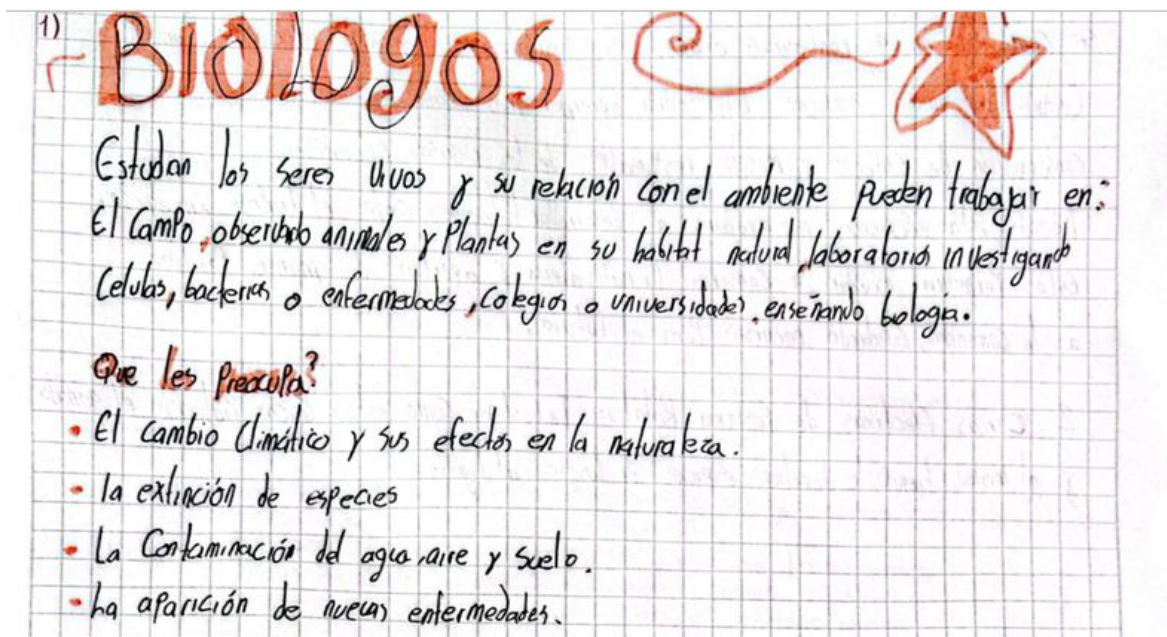 1)
BiOLOgOS
Estudan los seres vivos y su relación con el ambiente pueden trabajar en:
El Campo, observando animales y Plantas en su habitat natural, laboratorios investigando
Celulas, bacterias o enfermedades, colegios o universidades, enseñando biologia.
Que les Preocupa?
• El cambio Climático y sus efectos en la naturaleza.
• la extinción de especies
• La Contaminación del agua, aire y suelo.
• La aparición de nuevas enfermedades.